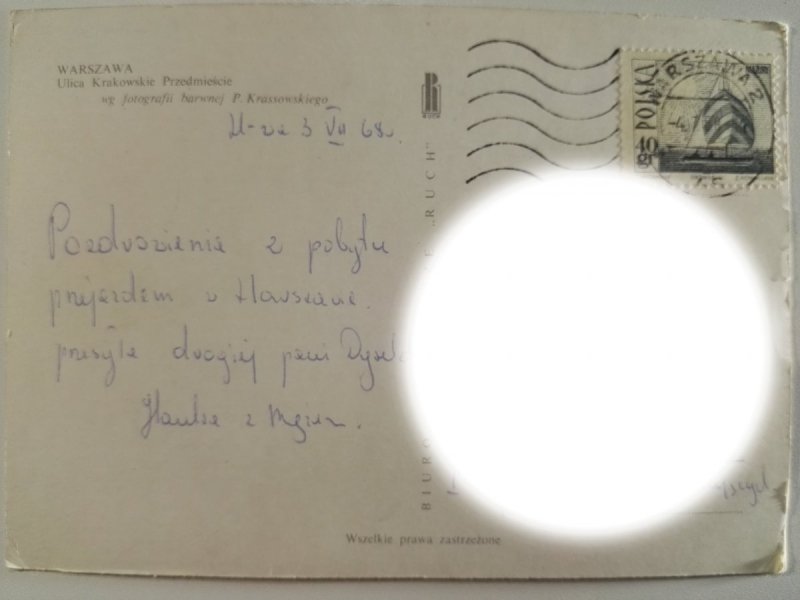 WARSZAWA
Ulica Krakowskie Przedmieście
wg fotografii barwnej P. Krassowskiego
W-wa 3 VII 68.
Pozdrowienia z pobytu
przejazdem w Warszawie.
przesyła drogiej pani
Hanka z Mężem.
RUCH
BIURO
"RUCH"
POLSKA
40 gr
WARSZAWA 2
Wszelkie prawa zastrzeżone